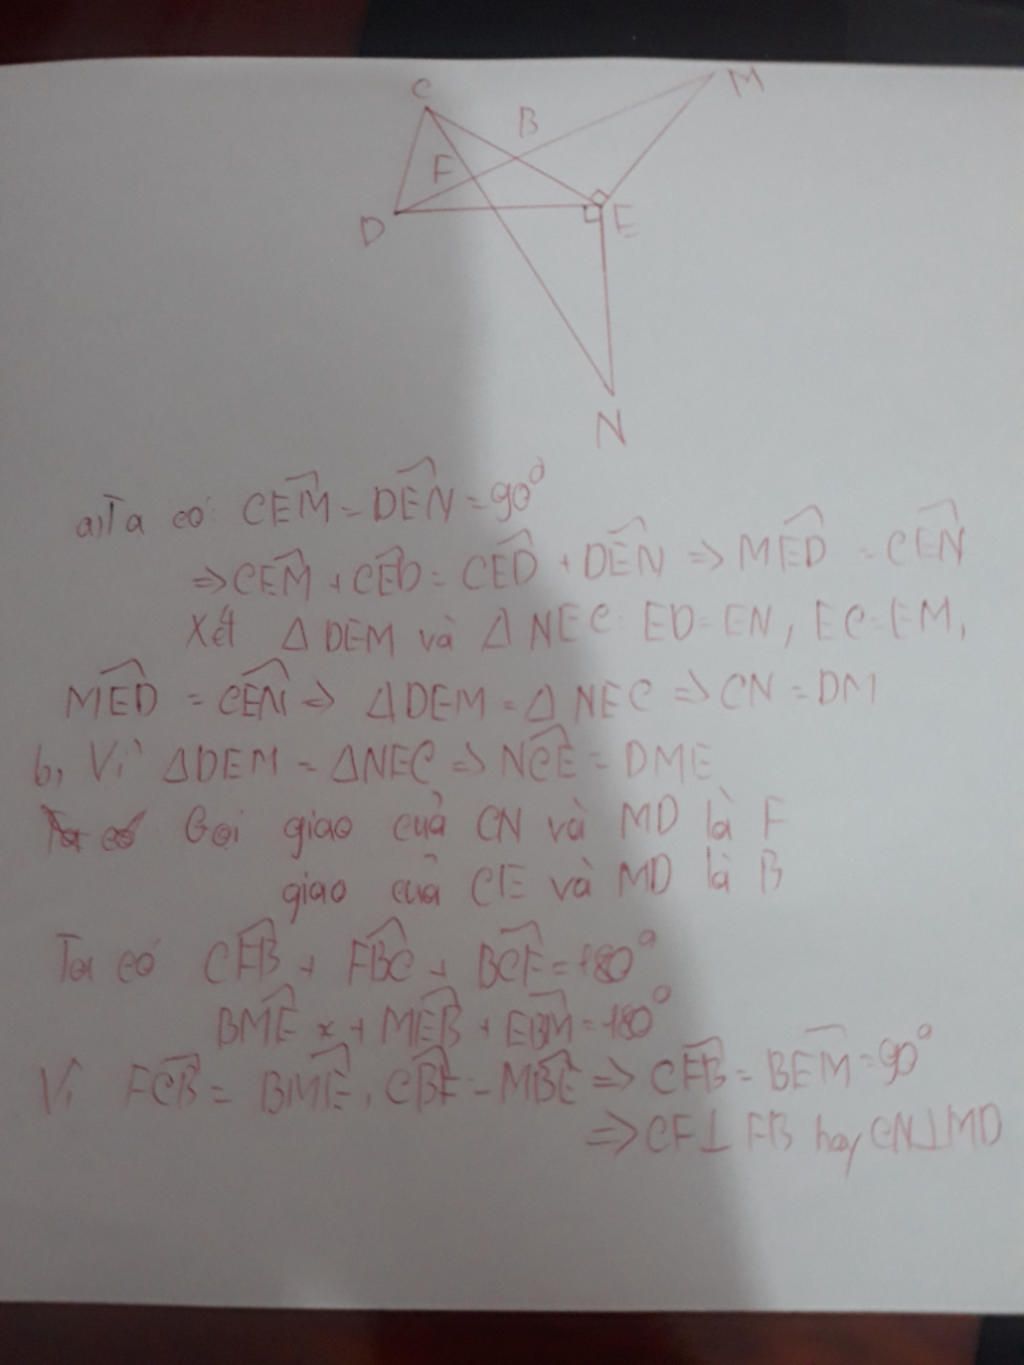 C
B
M
F
D
E
N
a) Ta có: CEM = DEN = 90°
⇒ CEM + CED = CED + DEN ⇒ MED = CEN
Xét Δ DEM và Δ NEC: ED = EN, EC = EM,
MED = CEN ⇒ Δ DEM = Δ NEC ⇒ CN = DM
b, Vì Δ DEM = Δ NEC ⇒ NCE = DME
Gọi giao của CN và MD là F
giao của CE và MD là B
Ta có CFB + FBC + BCF = 180°
BME + MEB + EBM = 180°
Vì FCB = BME, CBF = MBE ⇒ CFB = BEM = 90°
⇒ CF ⊥ FB hay CN ⊥ MD